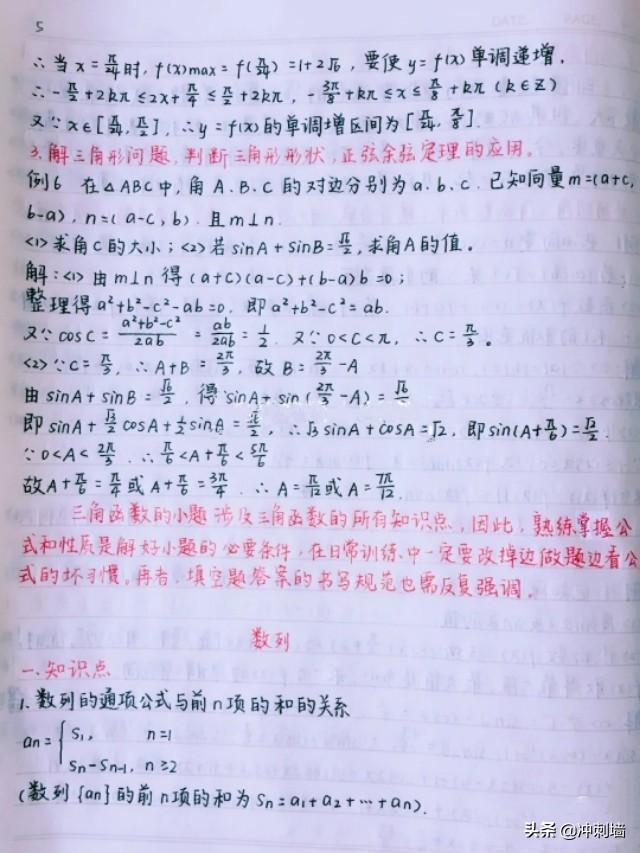 5
DATE PAGE
∴当x=π/24时, f(x)max=f(π/24)=1+2√6, 要使y=f(x)单调递增,
∴-π/2+2kπ≤2x+π/4≤π/2+2kπ, -3π/8+kπ≤x≤π/8+kπ(k∈Z)
又∵x∈[π/24,π/2], ∴y=f(x)的单调增区间为[π/24,π/8].
3.解三角形问题,判断三角形形状,正弦余弦定理的应用。
例6 在△ABC中,角A.B.C的对边分别为a.b.c.已知向量m=(a+c,
b-a),n=(a-c,b).且m⊥n.
<1>求角C的大小;<2>若sinA+sinB=√6/2,求角A的值。
解:<1>由m⊥n得(a+c)(a-c)+(b-a)b=0;
整理得a²+b²-c²-ab=0,即a²+b²-c²=ab.
又∵cosC=a²+b²-c²/2ab=ab/2ab=1/2.又∵0<C<π,∴C=π/3。
<2>∵C=π/3,∴A+B=2π/3,故B=2π/3-A
由sinA+sinB=√6/2,得sinA+sin(2π/3-A)=√6/2
即sinA+√3/2cosA+1/2sinA=√6/2,∴√3sinA+cosA=√2,即sin(A+π/6)=√2/2.
∵0<A<2π/3.∴π/6<A+π/6<5π/6
故A+π/6=π/4或A+π/6=3π/4.∴A=π/12或A=7π/12.
三角函数的小题涉及三角函数的所有知识点,因此,熟练掌握公
式和性质是解好小题的必要条件,在日常训练中一定要改掉边做题边看公
式的坏习惯。再者.填空题答案的书写规范也需反复强调。
数列
一.知识点
1.数列的通项公式与前n项的和的关系
an={S1, n=1
Sn-Sn-1, n≥2
(数列{an}的前n项的和为Sn=a1+a2+…+an).
头条@冲刺墙